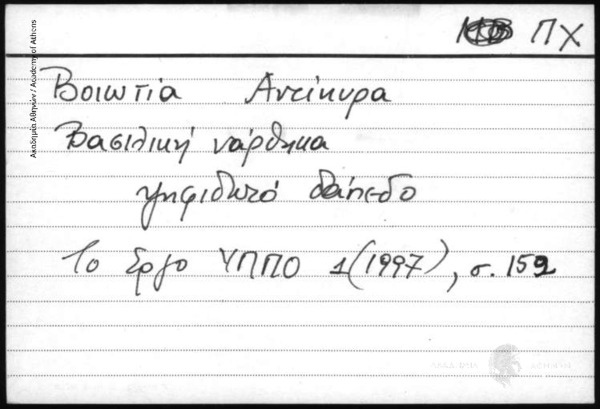 ΠΧ
Βοιωτία Αντίκυρα
Βασιλική νάρθηκα
ψηφιδωτό δάπεδο
Το Έργο ΥΠΠΟ 1(1997), σ. 152
Ακαδημία Αθηνών / Academy of Athens